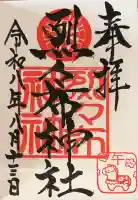 奉拝
烈々布神社
令和八年八月十三日
午